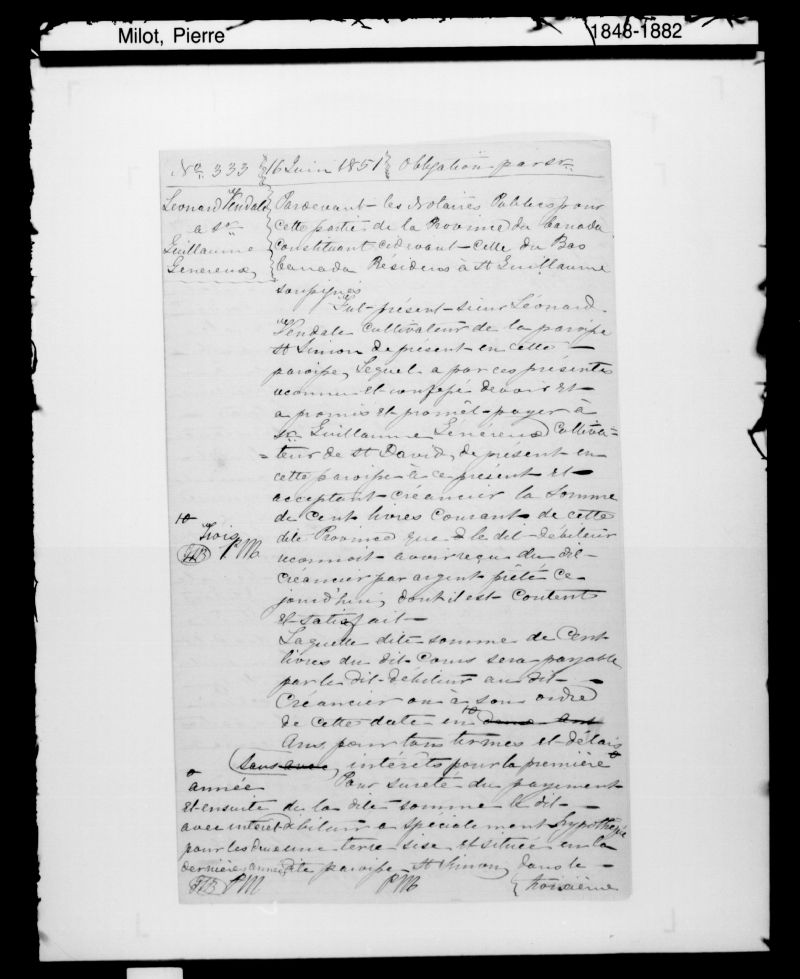 Milot, Pierre 1848-1882
No. 333 16 Juin 1851 Obligation par Sr.
Léonard Vendale
a Sr.
Guillaume
Généreux
Pardevant les Notaires Publics pour
cette partie de la Province du Canada
constituant cidevant celle du Bas
Canada Résidens à St Guillaume
soussignés
Fut présent sieur Léonard
Vendale cultivateur de la paroisse
St Simon de présent en cette
paroisse, Lequel a par ces présentes
reconnu et confessé devoir et
a promis et promêt payer à
Sr. Guillaume Généreux Cultiva=
=teur de St David, de présent en
cette paroisse à ce présent et
acceptant créancier la Somme
de Cent livres Courant de cette
dite Province que le dit débiteur
reconnoit avoir reçu du dit
Créancier par argent prêté ce
jourd'hui, dont il est Content
et satisfait
Laquelle dite somme de Cent
livres du dit Cours sera payable
par le dit débiteur au dit
Créancier ou à son ordre
de cette date en
Ans pour tous termes et délais
sans intérêts pour la première
Pour sureté du payement
de la dite somme le dit
débiteur a spécialement hypothéqué
une terre sise et située en la
dite paroisse St Simon, dans le
troisième
trois
PM
année
et ensuite
avec intérêt
pour les deux
dernières années
PM
PM